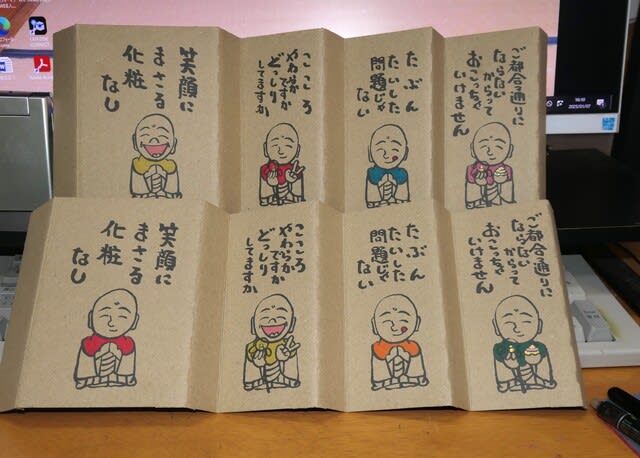 笑顔に
まさる
化粧
なし
こころ
やわらかですか
どっしり
してますか
たぶん
たいした
問題じゃ
ない
ご都合通りに
ならない
からって
おこっちゃ
いけません
2025/01/07
笑顔に
まさる
化粧
なし
こころ
やわらか
ですか
どっしり
してますか
たぶん
たいした
問題じゃ
ない
ご都合通りに
ならない
からって
おこっちゃ
いけません